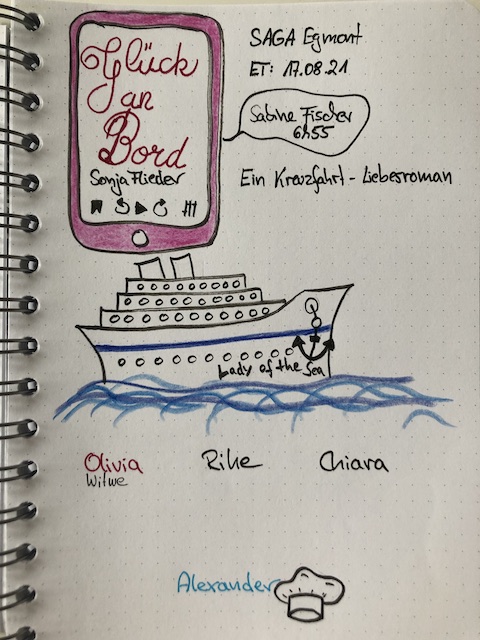 Glück
an
Bord
Sonja Flieder
SAGA Egmont
ET: 17.08.21
Sabine Fischer
6h55
Ein Kreuzfahrt - Liebesroman
Lady of the Sea
Olivia
Witwe
Rike
Chiara
Alexander